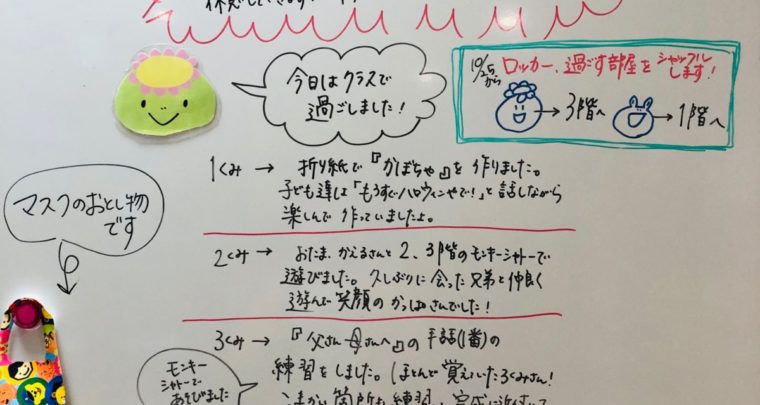 今日はクラスで
過ごしました!
10/25から
ロッカー、過ごす部屋を
シャッフル
します!
→3階へ
→1階へ
マスクのおとし物
です
1くみ → 折り紙で『かぼちゃ』を作りました。
子ども達は「もうすぐハロウィンやで!」と話しながら
楽しんで作っていましたよ。
2くみ → おたま、かえるさんと2、3階のモンキーシャトーで
遊びました。久しぶりに会った兄弟と仲良く
遊んで笑顔のかっぱさんでした!
3くみ → 『父さん母さんへ』の手話(1番)の
練習をしました。ほとんど覚えていた3くみさん!
こまかい箇所も練習し、完成に近付いて
モンキー
シャトーで
あそびました